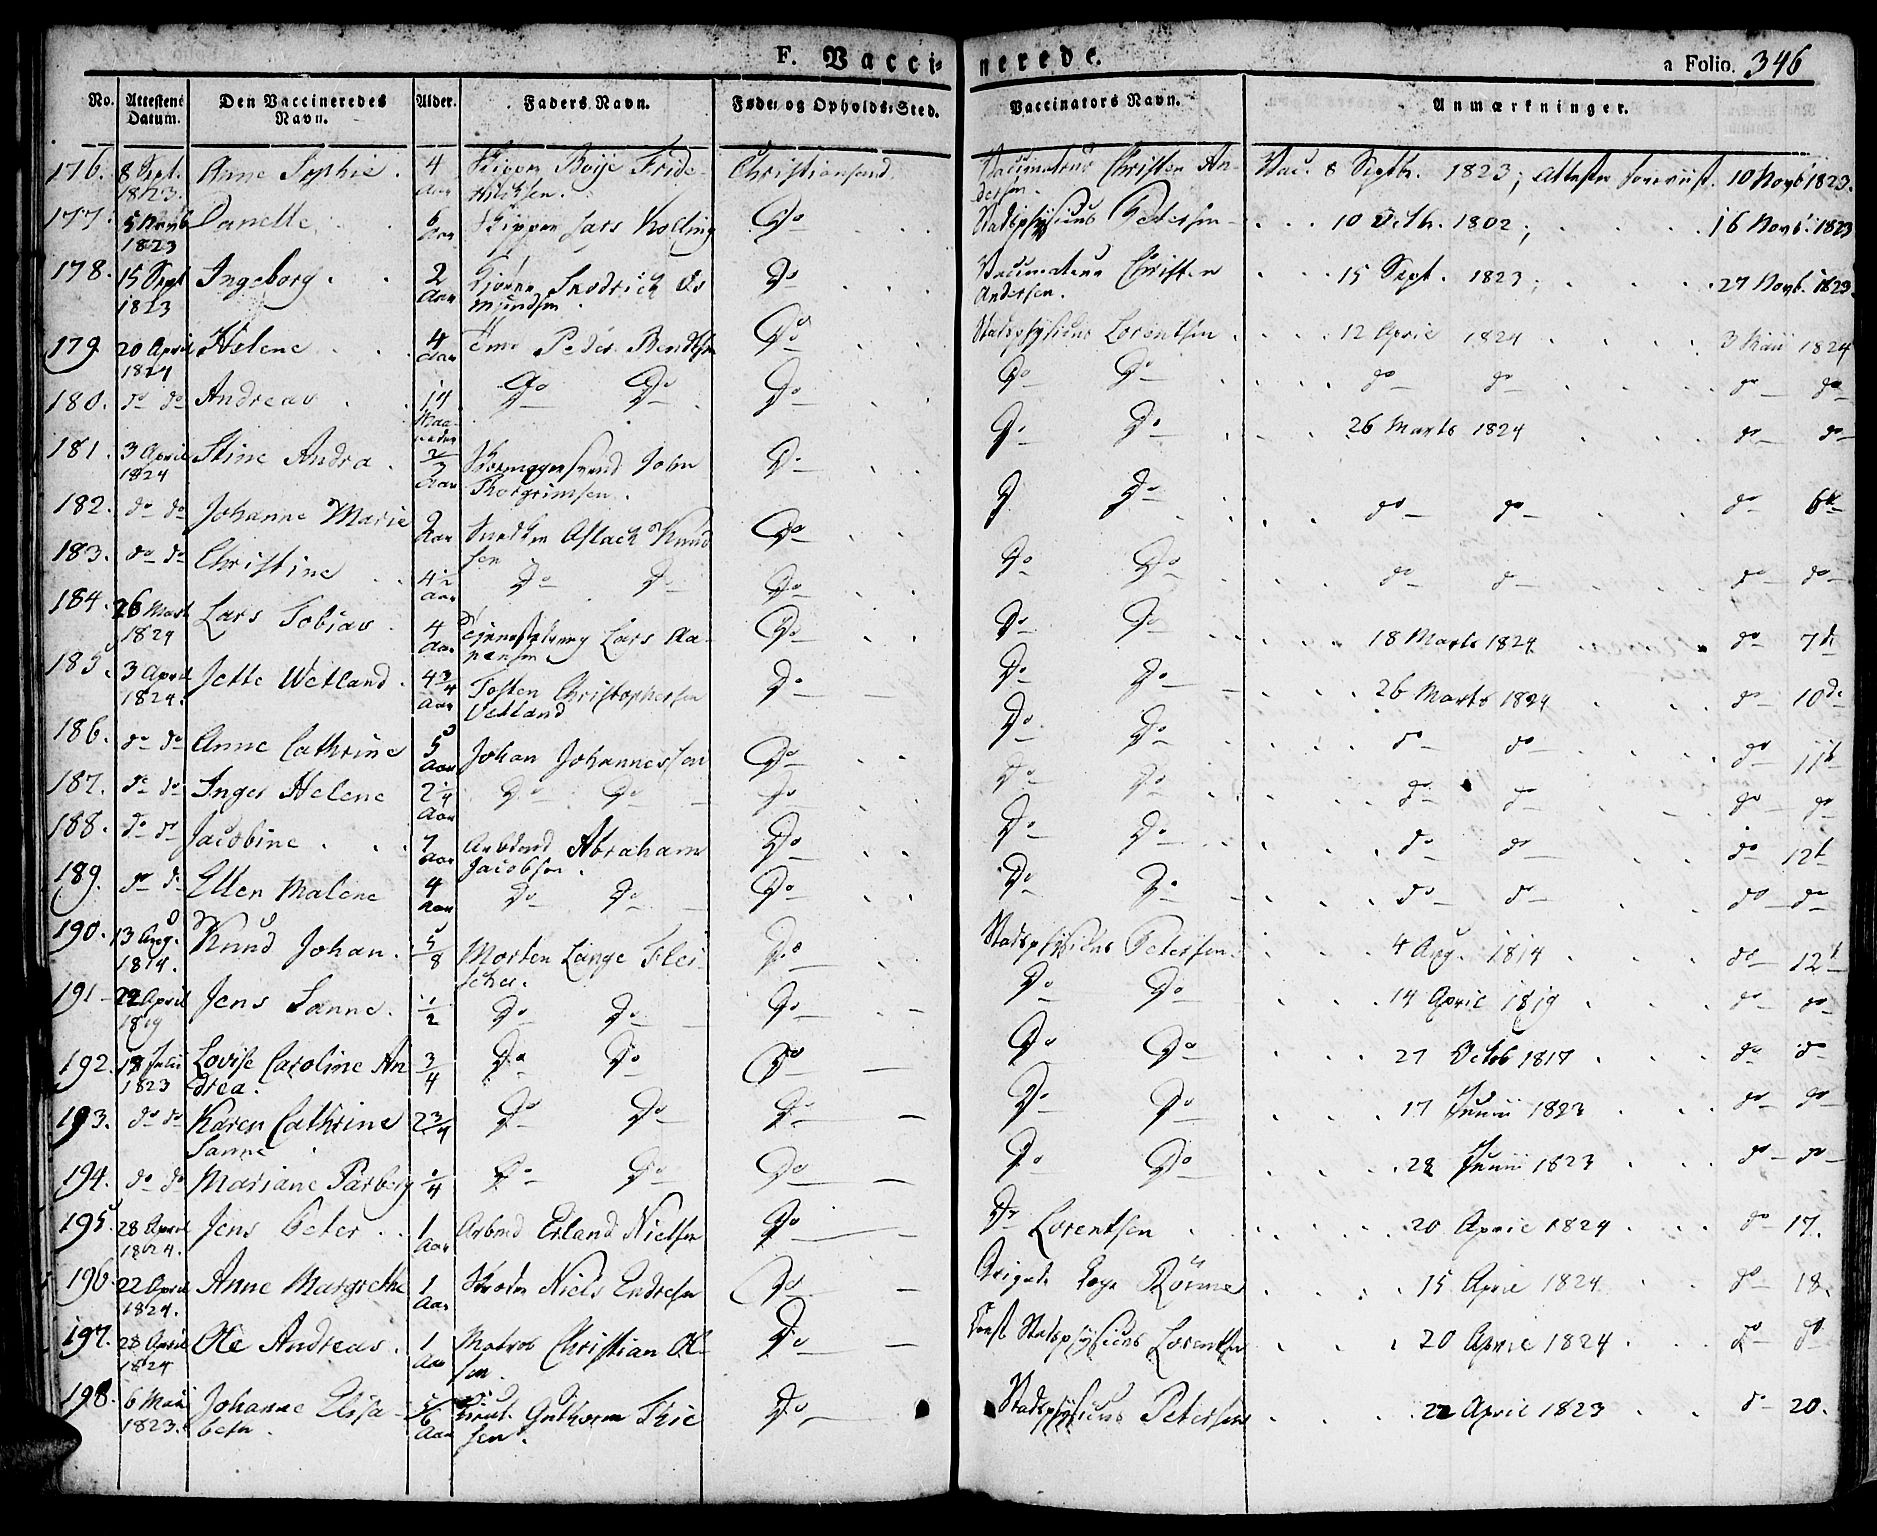 F. Vaccinerede.
a Folio. 346
No. Attestens Datum. Den Vaccineredes Navn. Alder. Faders Navn. Føde- og Opholds-Sted. Vaccinators Navn. Anmærkninger.
176. 8 Sept. 1823. Anne Sophie. 4 Aar Skipper Boije Friderichsen. Christiansand. Vaccinateur Christen Andersen. Vac. 8 Septbr. 1823; Attesten foreviist. 10 Novb 1823.
177. 5 Novb 1823 Danelle 6 Aar Skipper Lars Kolling Do Stadsphysicus Petersen 10 Octbr. 1802; 16 Novb. 1823
178. 15 Sept 1823 Ingeborg. 2 Aar Osmundsen Do Vaccinateur Christen Andersen. 15 Sept. 1823; 27 Novb. 1823.
179 20 April 1824 Helene 4 Aar Peder Bendtsen Do Stadsphysicus Lorentsen 12 April 1824 3 Maii 1824
180. do do Andreas Do Do Do Do Do do do do do
181. 3 April 1824 Stine Andra Aar John Thorgrimsen. Do Do Do 26 Marts 1824 do do
182. do do Johanne Marie 2 Aar Aslach Knudsen Do D Do do do do 6te
183. do do Christine 4½ Aar Do Do Do Do Do do do do do
184. 26 Mart 1824 Lars Tobias 4 Aar Lars Aanensen Do Do Do 18 Marts 1824 do 7de
185. 3 April 1824. Jette Wetland. 4¾ Aar Tosten Christophersen Vetland Do Do Do 26 Marts 1824 do 10de
186. do do Anne Cathrine 5 Aar Johan Johannessen Do Do Do do do do 11te
187. do do Inger Helene 2¼ Aar Do Do Do Do Do do do do do
188. do do Jacobine 7 Aar Arbdsmd Abraham Jacobsen. Do Do Do do do do 12te
189. do do Ellen Malene 4 Aar Do Do Do Do Do do do do do
190. 13 Aug. 1814. Knud Johan. 5/8 Morten Lange Fleischer. Do Stadsphysicus Petersen. 4 Aug. 1814 do 12te
191 22 April 1819 Jens Sanne. ½ Do Do Do Do Do 14 April 1819 do do
192. 18 Julii 1823 Lovise Caroline Andrea. ¾ Do Do Do Do Do 27 Octob 1817 do do
193. do do Karen Cathrine Sanne 2¾ Do Do Do Do Do 17 Junii 1823 do do
194. do do Mariane Parberg ¼ Do Do Do Do Do 28 Junii 1823 do do
195. 28 April 1824. Jens Peter 1 Aar Arbmd Erland Nielsen Do Do Lorentsen 20 April 1824 do 17.
196 22 April 1824. Anne Margrethe 1 Aar Niels Endresen Do 15 April 1824 do 18.
197. 28 April 1824 Ole Andreas. 1 Aar Matros Christian Olsen. Do Const Stadsphysicus Lorentsen 20 April 1824 do do
198. 6 Maii 1823. Johanne Elisabeth. 5/6 Aar Lieut. Guthorm Thiesen. Do Stadsphysicus Petersen 22 April 1823 do 20.